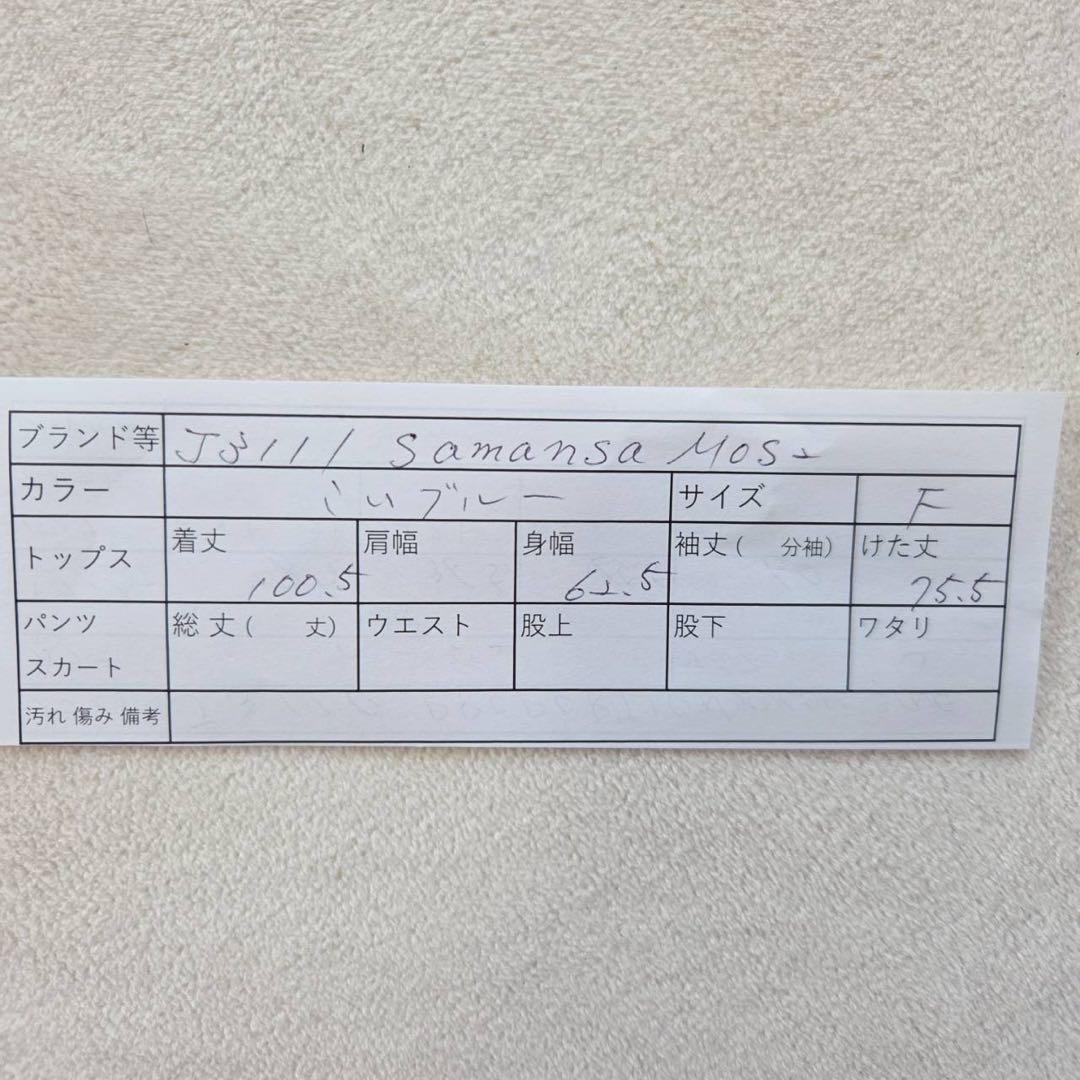 ブランド等 J3111 Samansa Mos2
カラー こいブルー サイズ F
トップス 着丈 100.5 肩幅 身幅 62.5 袖丈( 分袖) けた丈 75.5
パンツ スカート 総丈( 丈) ウエスト 股上 股下 ワタリ
汚れ 傷み 備考